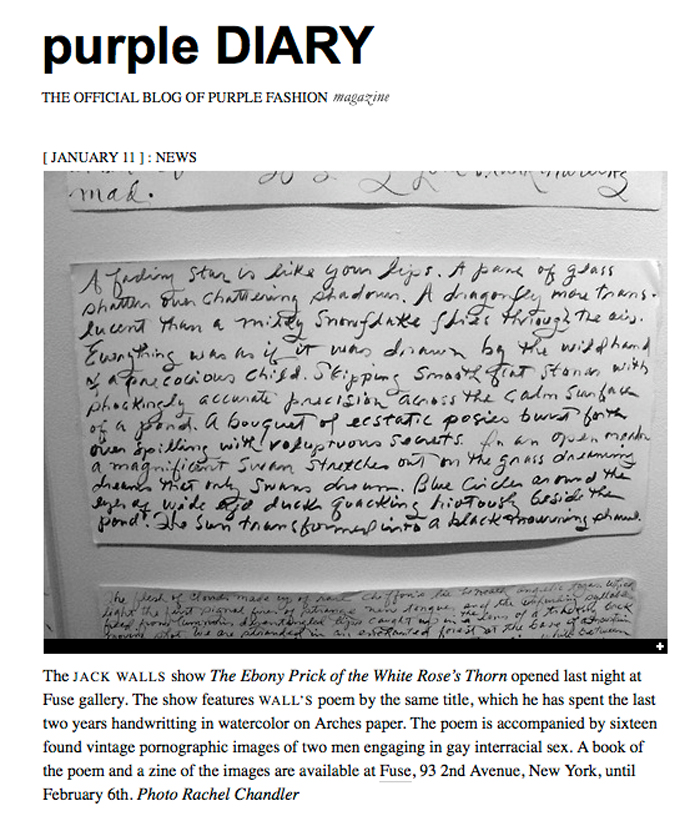 purple DIARY
THE OFFICIAL BLOG OF PURPLE FASHION magazine
[ JANUARY 11 ] : NEWS
mad.
A fading star is like your lips. A pane of glass
shatters over chattering shadows. A dragonfly more trans-
lucent than a milky snowflake flies through the air.
Everything was as if it was drawn by the wild hand
of a precocious child. Skipping smooth flat stones with
shockingly accurate precision across the calm surface
of a pond. A bouquet of ecstatic posies burst forth
over spilling with voluptuous secrets. In an open meadow
a magnificent swan stretches out on the grass dreaming
dreams that only swans dream. Blue circles around the
eyes of wide eyed ducks quacking riotously beside the
pond. The sun transformed into a black mourning shawl.
The flesh of clouds made up of rare chiffon's lie beneath angelic togas. which
light the first signal fires of strange new tongues and the
in the lens of a
we are stranded in an enchanted forest at the base of a
between
The JACK WALLS show The Ebony Prick of the White Rose's Thorn opened last night at
Fuse gallery. The show features WALL'S poem by the same title, which he has spent the last
two years handwritting in watercolor on Arches paper. The poem is accompanied by sixteen
found vintage pornographic images of two men engaging in gay interracial sex. A book of
the poem and a zine of the images are available at Fuse, 93 2nd Avenue, New York, until
February 6th. Photo Rachel Chandler